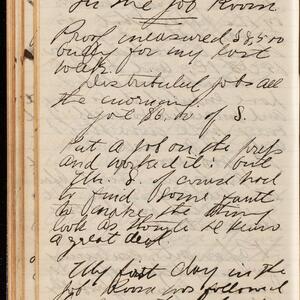 In the Job Room
Proof measured $8,500
for my last
week.
Distributed jobs all
the morning.
got $6.00 of S.
Put a job on the press
and worked it; but
Mr. S. of course had
to find some fault
to make the thing
look as though he knew
a great deal
My first day in the
Job Room was followed